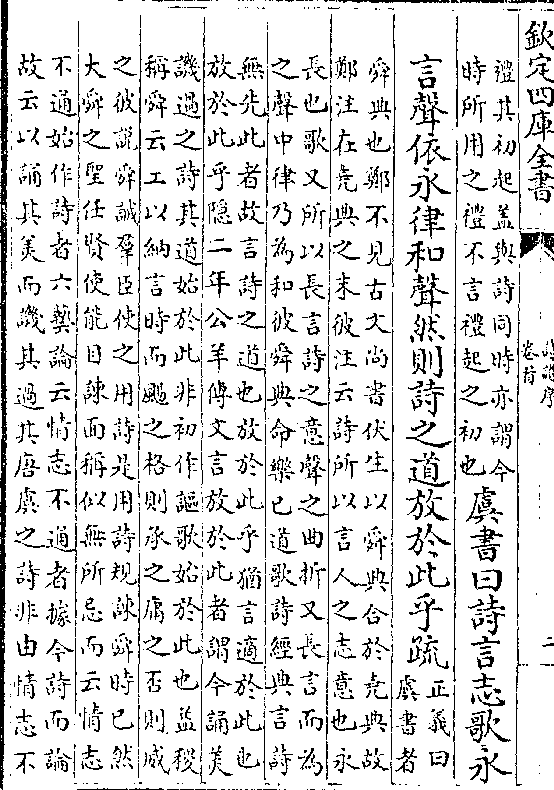 欽定四庫全書
詩譜序
卷首
二
禮其初起蓋與詩同時亦謂今
時所用之禮不言禮起之初也
虞書曰詩言志歌永
言聲依永律和聲然則詩之道放於此乎疏
正義曰
虞書者
舜典也鄭不見古文尚書伏生以舜典合於堯典故
鄭注在堯典之末彼注云詩所以言人之志意也永
長也歌又所以長言詩之意聲之曲折又長言而為
之聲中律乃為和彼舜典命樂已道歌詩經典言詩
無先此者故言詩之道也放於此乎猶言適於此也
放於此乎隱二年公羊傳文言放於此者謂今誦美
譏過之詩其道始於此非初作謳歌始於此也益稷
稱舜云工以納言時而颺之格則承之庸之否則威
之彼說舜誡羣臣使之用詩是用詩規諫舜時已然
大舜之聖任賢使能目諫面稱似無所忌而云情志
不通始作詩者六藝論云情志不通者據今詩而論
故云以誦其美而譏其過其唐虞之詩非由情志不